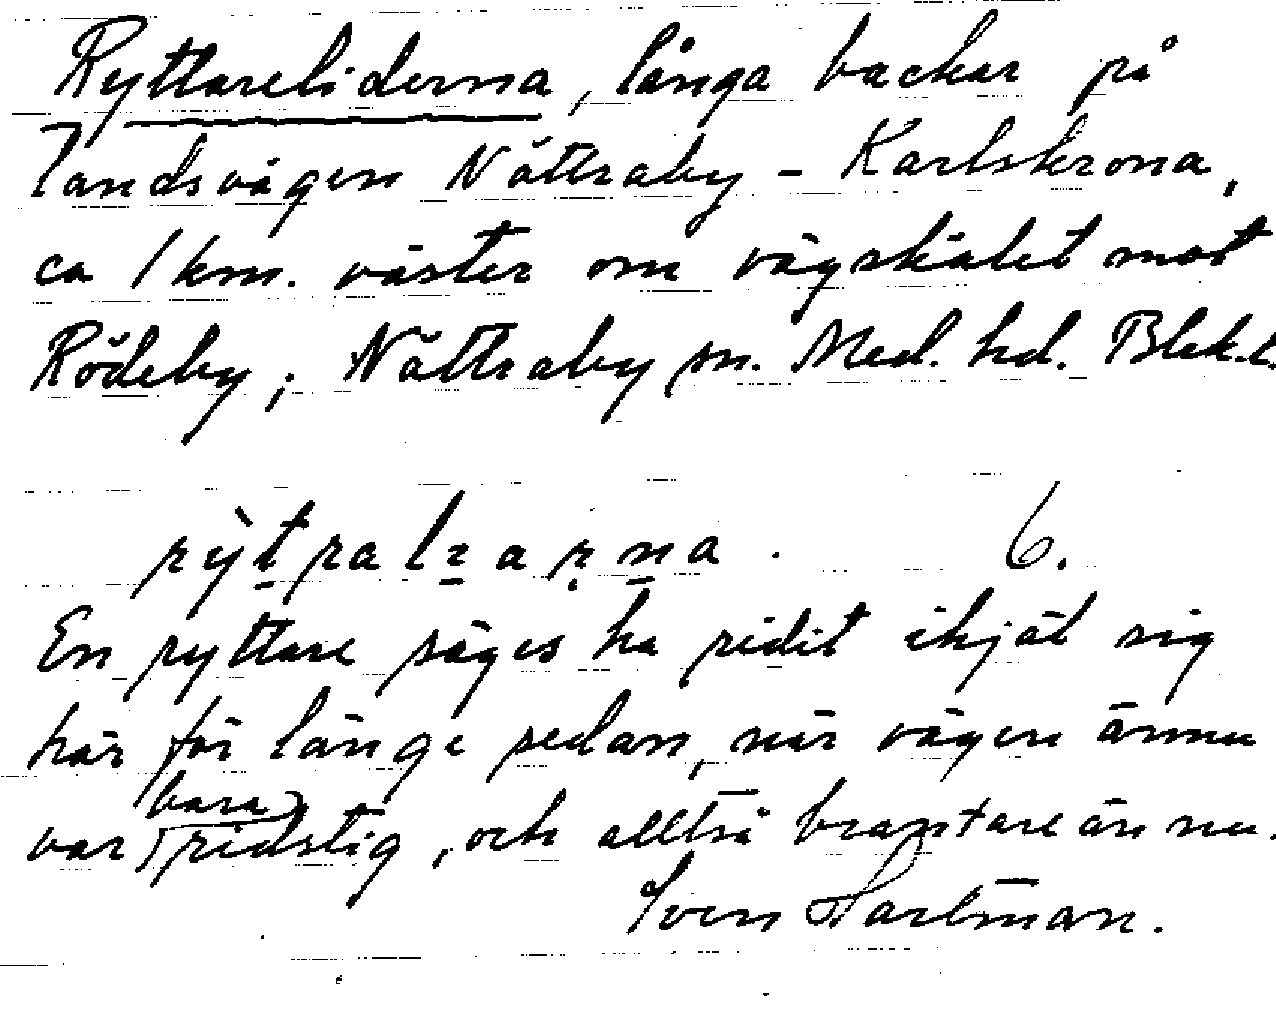 Ryttareliderna, långa backar på
landsvägen Nättraby - Karlskrona,
ca 1 km. väster om vägskälet mot
Rödeby, Nättraby sn. Med. hd. Blek.l.
6.
En ryttare säges ha ridit ihjäl sig
här för länge sedan, när vägen ännu
bara
var ridstig, och alltså brantare än nu.
Sven Hartman.